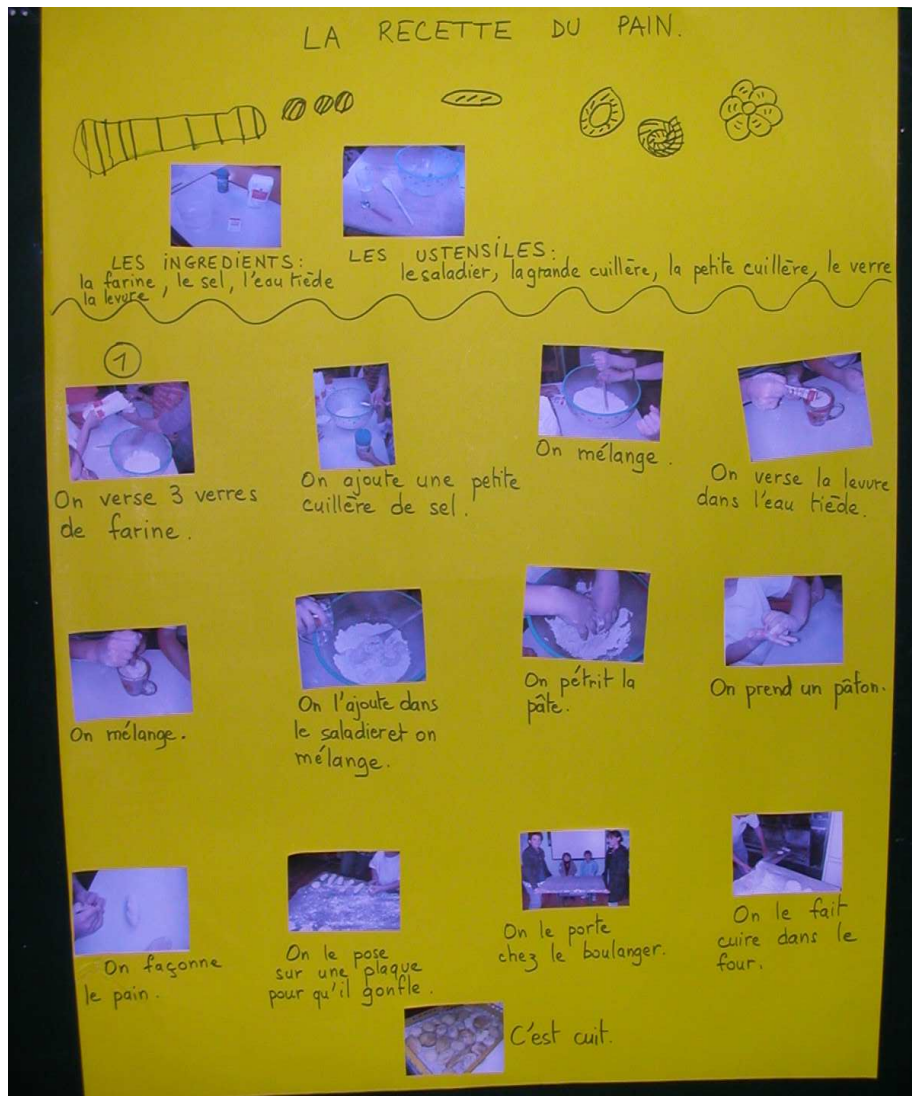 LA RECETTE DU PAIN.
LES INGREDIENTS:
la farine, le sel, l'eau tiède
la levure
LES USTENSILES:
le saladier, la grande cuillère, la petite cuillère, le verre
1
On verse 3 verres
de farine.
On ajoute une petite
cuillère de sel.
On mélange.
On verse la levure
dans l'eau tiède.
On mélange.
On l'ajoute dans
le saladier et on
mélange.
On pétrit la
pâte.
On prend un pâton.
On façonne
le pain.
On le pose
sur une plaque
pour qu'il gonfle.
On le porte
chez le boulanger.
On le fait
cuire dans le
four.
C'est cuit.